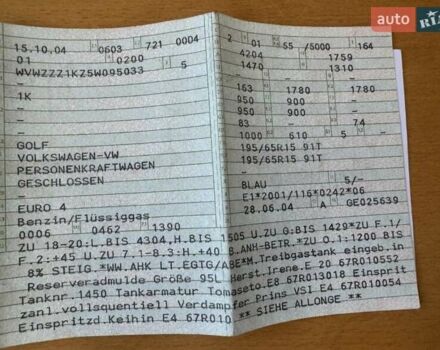 auto RIA
15.10.04 0603 721 0004
01 0200
WVWZZZ1KZ5W095033 5
–
–
1K
–
–
GOLF
VOLKSWAGEN-VW
PERSONENKRAFTWAGEN
GESCHLOSSEN
–
EURO 4
Benzin/Flüssiggas
0006 0462 1390
2 01 55 /5000 164
4204 1759
1470 1310
–
163 1780 1780
950 900 –
950 900 –
83 – 74
1000 610 5 –
195/65R15 91T
195/65R15 91T
–
BLAU 5/–
E1*2001/116*0242*06
28.06.04 A GE025639
ZU 18-20:L.BIS 4304,H.BIS 1505 U.ZU G:BIS 1429*ZU F.1/
F.2:+45 U.ZU 7.1-8.3:H.+40 B.ANH-BETR.*ZU O.1:1200 BIS
8% STEIG.*WW.AHK LT.EGTG/ABE*M.Treibgastank eingeb.in
Reserveradmulde Größe 95L Herst.Irene.E 20 67R010552
Tanknr.1450 Tankarmatur Tomaseto.E8 67R013018 Einsprit
zanl.vollsquentiell Verdampfer Prins VSI E4 67R010054
Einspritzd.Keihin E4 67R010 ** SIEHE ALLONGE **